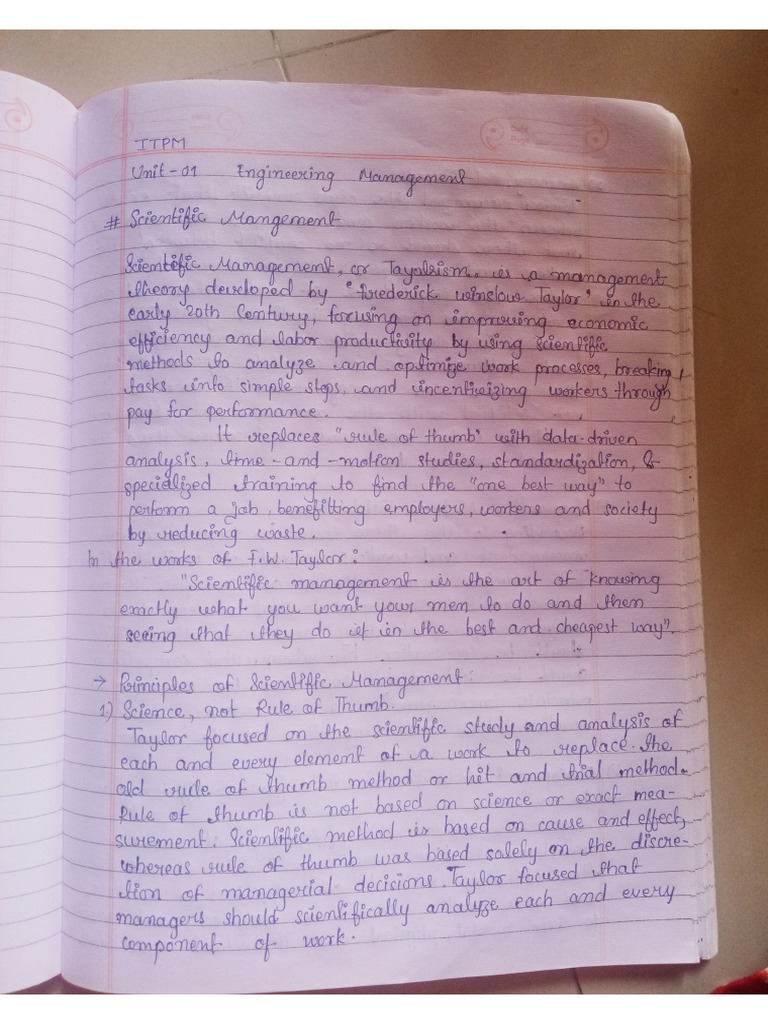 ITPM
Unit-01 Engineering Management
# Scientific Mangement
Scientific Management, or Tayolrism, is a management
theory developed by "frederick winslow Taylor" in the
early 20th Century, focusing on improving economic
efficiency and labor productivity by using scientific
methods to analyze and optimize work processes, breaking
tasks into simple steps, and incentivizing workers through
pay for performance.
It replaces "rule of thumb" with data-driven
analysis, time-and-motion studies, standardization, &
specialized training to find the "one best way" to
perform a job, benefitting employers, workers and society
by reducing waste.
In the works of F.W. Taylor:
"Scientific management is the art of knowing
exactly what you want your men to do and then
seeing that they do it in the best and cheapest way".
→ Principles of Scientific Management:
1) Science, not Rule of Thumb.
Taylor focused on the scientific study and analysis of
each and every element of a work to replace the
old rule of thumb method or hit and trial method.
Rule of thumb is not based on science or exact mea-
surement. Scientific method is based on cause and effect,
whereas rule of thumb was based solely on the discre-
tion of managerial decisions. Taylor focused that
managers should scientifically analyze each and every
component of work.